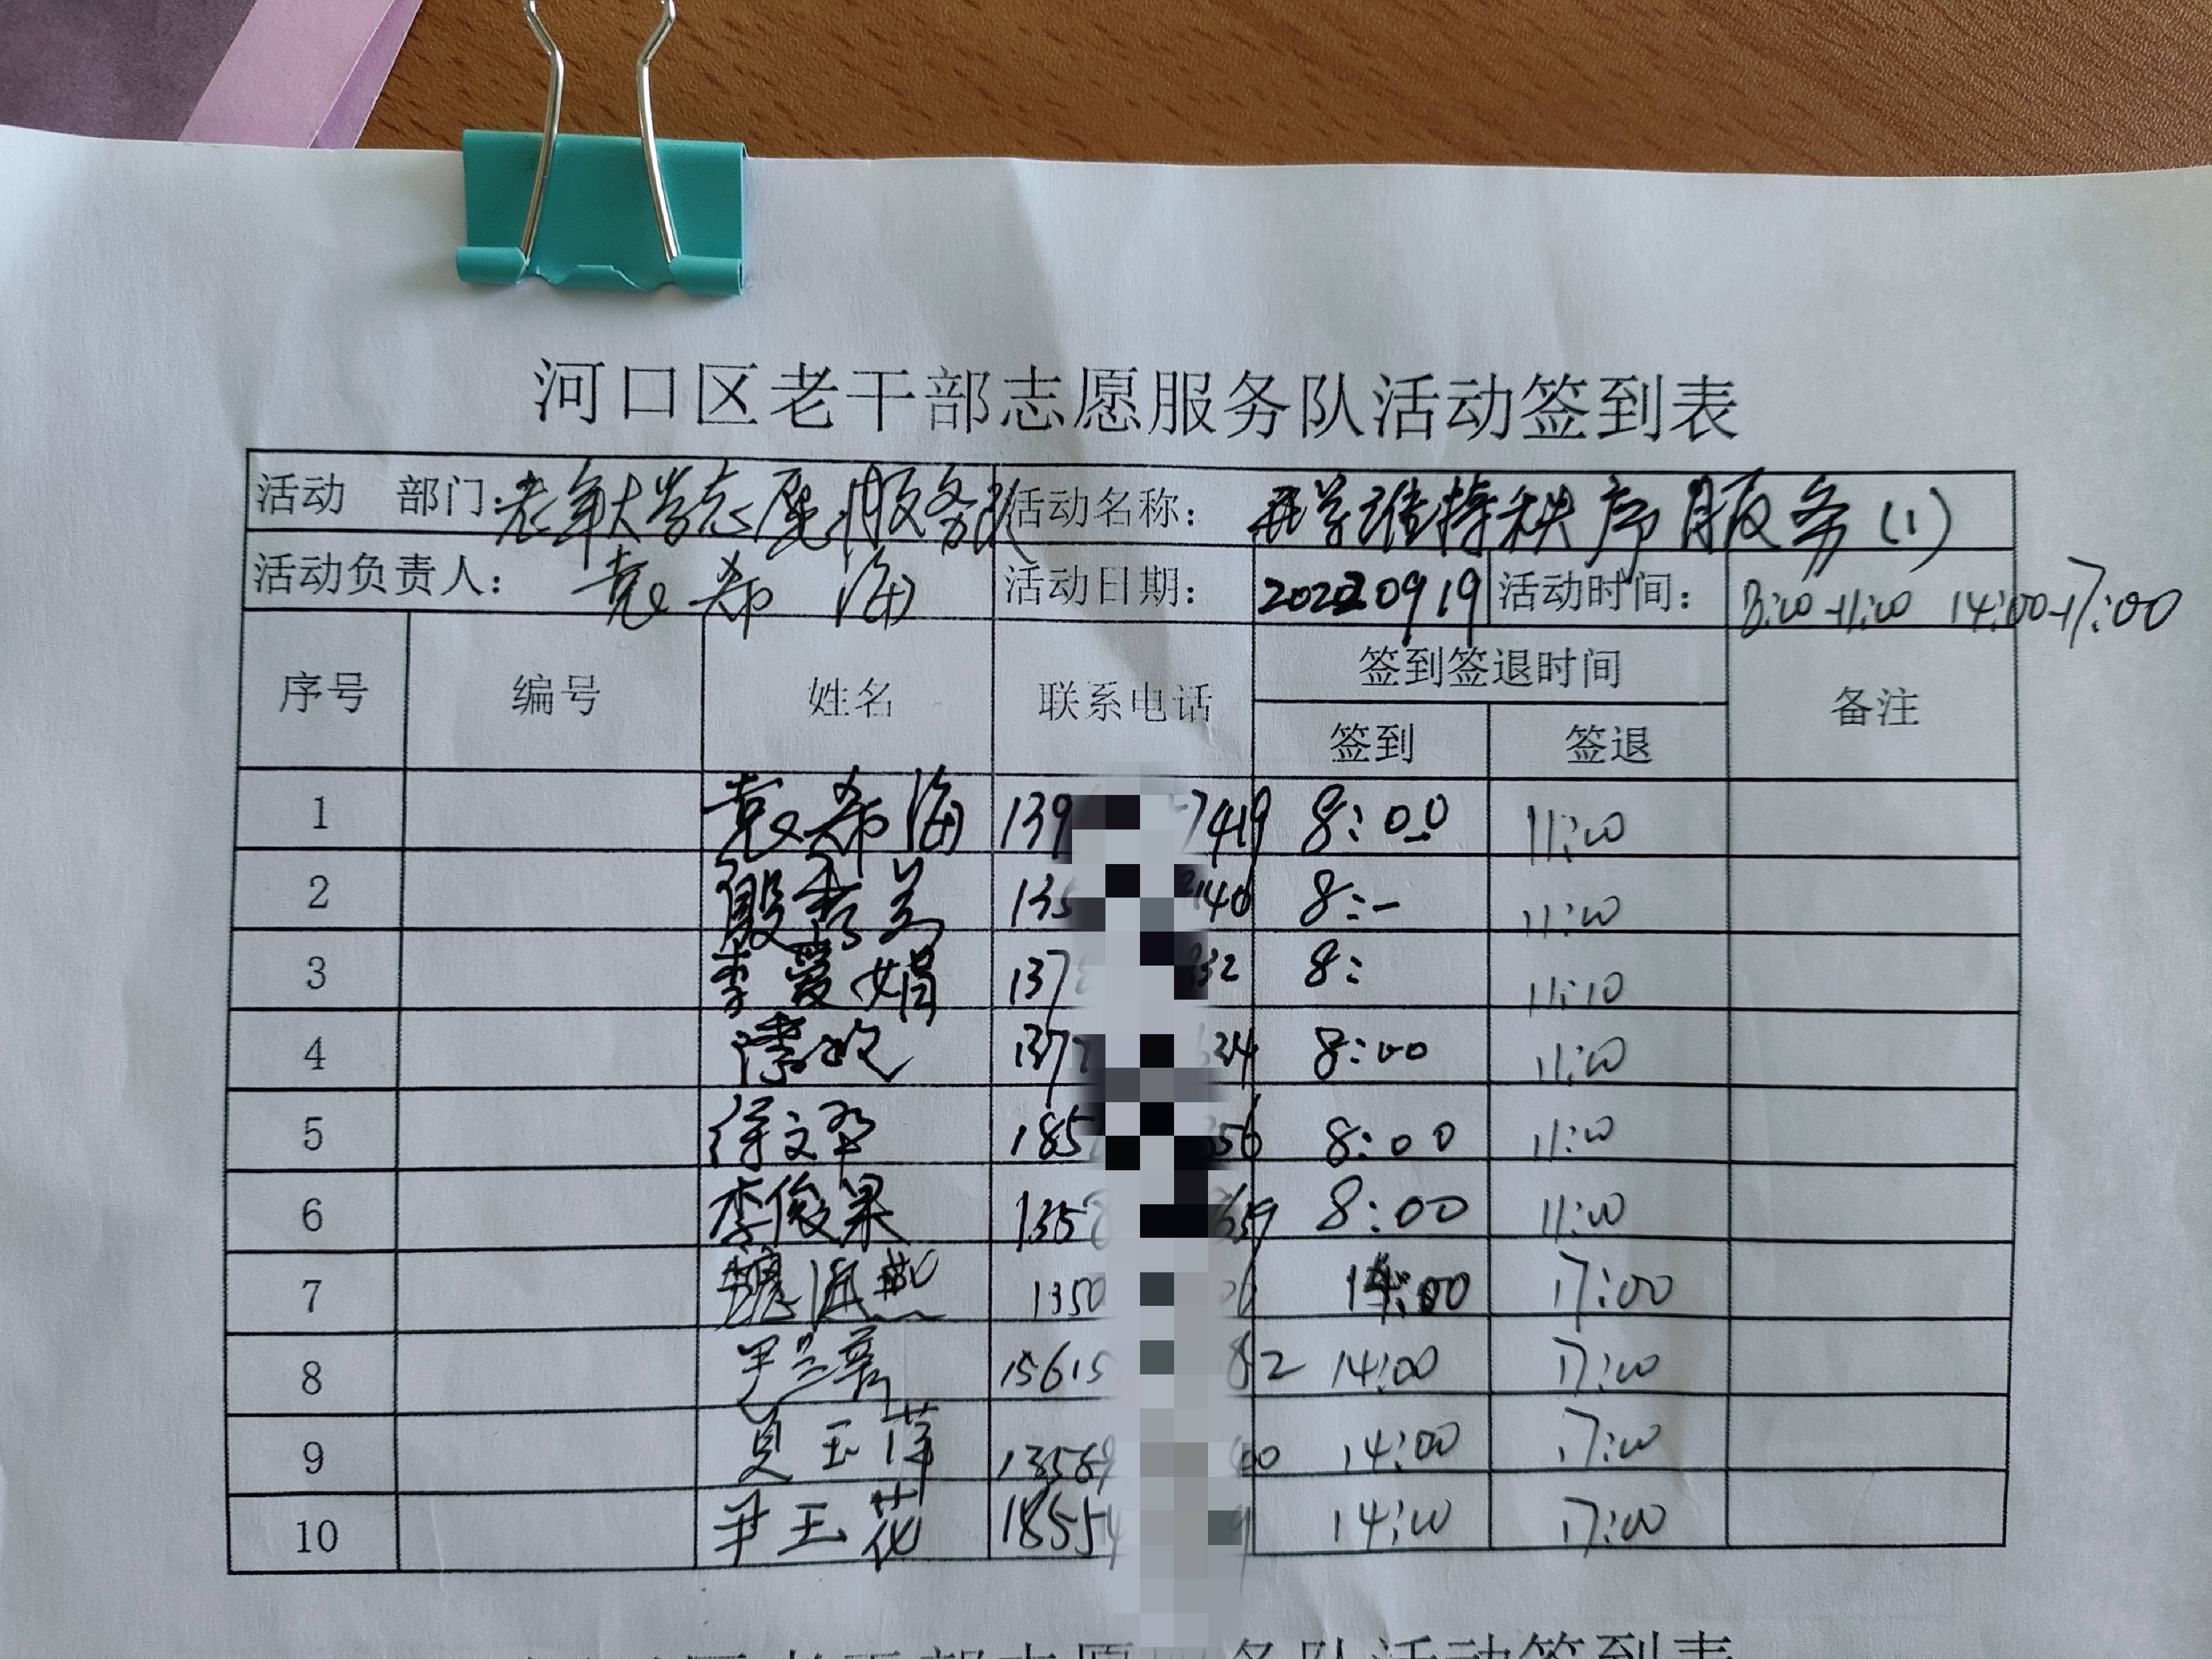 河口区老干部志愿服务队活动签到表
活动 部门：老年大学志愿服务队 活动名称： 开学维持秩序服务（1）
活动负责人： 袁希海 活动日期： 20220919 活动时间： 8:00-11:00 14:00-17:00
序号 编号 姓名 联系电话 签到签退时间 备注
签到 签退
1 袁希海 139 7419 8:00 11:00
2 殷秀兰 135 2140 8:- 11:00
3 李爱娟 137 32 8: 11:10
4 137 324 8:00 11:00
5 徐文华 185 356 8:00 11:00
6 李俊果 1358 359 8:00 11:00
7 魏海燕 1350 26 14:00 17:00
8 尹兰 15615 82 14:00 17:00
9 玉萍 13569 00 14:00 17:00
10 尹玉花 18554 9 14:00 17:00
区老干部志愿 务队活动签到表